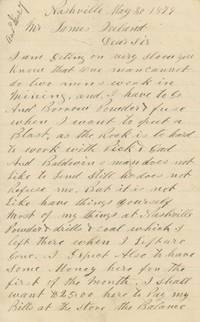 Nashville May 30 1879
Mr James Ireland
Dear Sir
I am Geting on very Slow you
know that one man cannot
do two mens work in
Mining, and I have to Go
And Borrow Powder & fuse
when I want to put a
Blast, as the Rock is to hard
to work with Pick & Gad
And Baldwins man does not
like to lend Still he does not
Refuse me. But it is not
like have things yourself
Most of my things at Nashville
Powder & drills & coal which I
left there when I
Gone. I Expect Also to have
Some Money here for the
first of the Month. I shall
want $25.00 here to Pay my
Bills at the Store the Balance